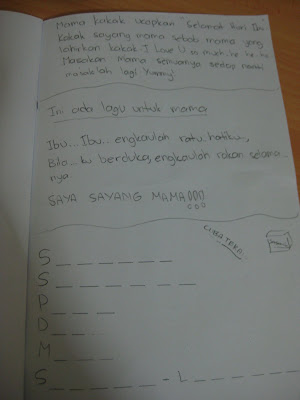 Mama kakak ucapkan "Selamat Hari Ibu.
Kakak sayang mama sebab mama yang
lahirkan kakak. I Love U so much. he he he
Masakan mama semuanya sedap nanti
masaklah lagi. Yummy"
Ini ada lagu untuk mama
Ibu... Ibu... engkaulah ratu hatiku,
Bila.. ku berduka, engkaulah rakan selama..
nya..
SAYA SAYANG MAMA!!!
CUBA TEKA..
S _ _ _ _ _ _
S _ _ _ _ _ _ _
P _ _ _
D _ _ _
M _ _ _ _
S _ _ _ _ _ _ - L _ _ _ _ _ _